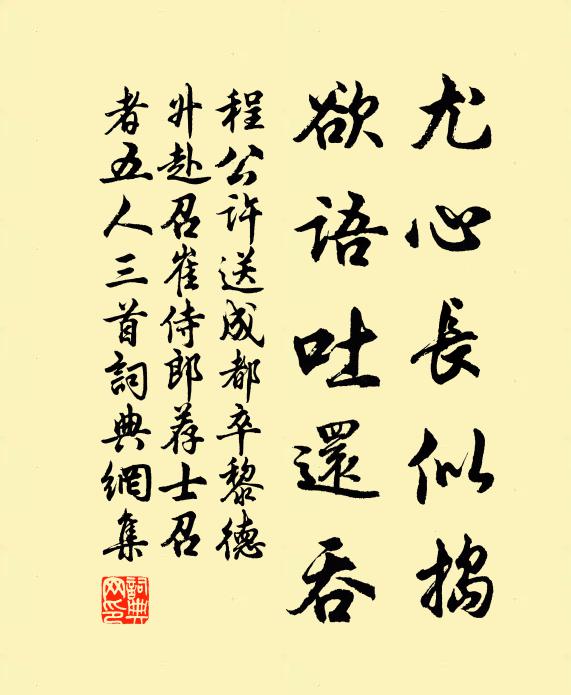 尤心長似搗
欲語吐還吞
程公許送成都卒黎德
升赴召崔侍郎荐士召
者五人三首詞典網集
詞典
網